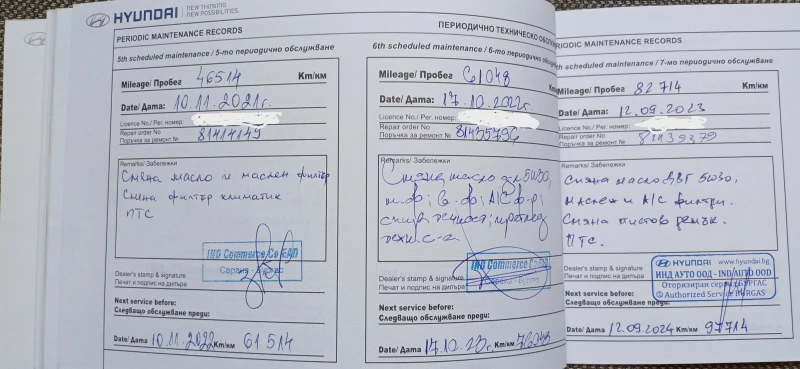 HYUNDAI
NEW THINKING.
NEW POSSIBILITIES.
PERIODIC MAINTENANCE RECORDS
5th scheduled maintenance / 5-то периодично обслужване
Mileage/ Пробег 46514 Km/км
Date/ Дата: 10.11.2021г.
Licence No./ Рег. номер:
Repair order No
Поръчка за ремонт № 81414149
Remarks/ Забележки
Смяна масло и маслен филтър
Смяна филтър климатик
ПТС
ING Commerce Co EAD
Сарана - Бургас
Dealer's stamp & signature
Печат и подпис на дилъра
Next service before:
Следващо обслужване преди:
Date/ Дата 10.11.2022 Km/км 61514
ПЕРИОДИЧНО ТЕХНИЧЕСКО ОБСЛ
6th scheduled maintenance / 6-то периодично обслужван
Mileage/ Пробег 61048
Date/ Дата: 17.10.2022г.
Licence No./ Рег. номер:
Repair order No
Поръчка за ремонт № 81435796
Remarks/ Забележки
Смяна масло 5W30,
ING Commerce Co
Dealer's stamp & signature
Печат и подпис на дилъра
Next service before:
Следващо обслужване преди:
Date/ Дата 17.10.23г. Km/км 76048
RIODIC MAINTENANCE RECORDS
th scheduled maintenance / 7-мо периодично обслужване
Mileage/ Пробег 82714 Km/км
Date/ Дата: 12.09.2023
Licence No./ Рег. номер:
Repair order No
Поръчка за ремонт № 81139379
Remarks/ Забележки
Смяна масло ДВГ 5W30,
маслен и A/C филтри.
Смяна пистов ремък.
ПТС.
HYUNDAI www.hyundai.bg
ИНД АУТО ООД - IND AUTO OOD
Оторизиран сервиз БУРГАС
Authorized Service BURGAS
Dealer's stamp & signature
Печат и подпис на дилъра
Next service before:
Следващо обслужване преди:
Date/ Дата 12.09.2024 Km/км 97714